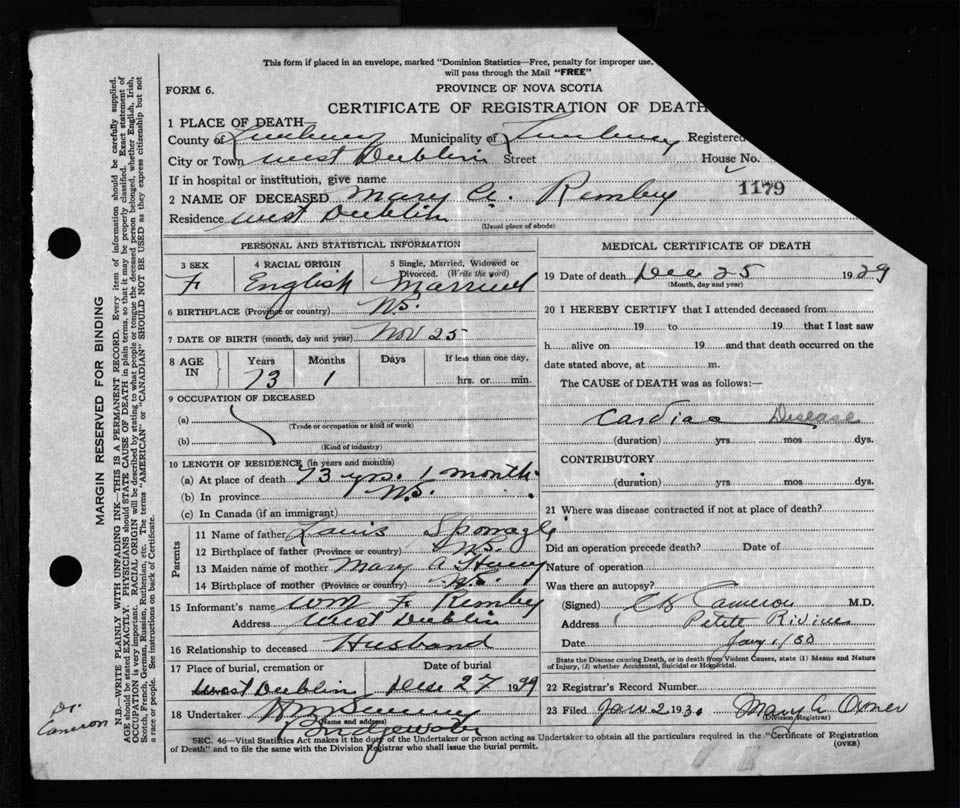 This form if placed in an envelope, marked "Dominion Statistics—Free, penalty for improper use,
will pass through the Mail "FREE"
FORM 6.
PROVINCE OF NOVA SCOTIA
CERTIFICATE OF REGISTRATION OF DEATH
1 PLACE OF DEATH
County of Lunenburg Municipality of Lunenburg Registered
City or Town West Dublin Street House No.
If in hospital or institution, give name
1179
2 NAME OF DECEASED Mary A. Remby
Residence West Dublin
(Usual place of abode)
PERSONAL AND STATISTICAL INFORMATION
3 SEX 4 RACIAL ORIGIN 5 Single, Married, Widowed or Divorced. (Write the word)
F English Married
6 BIRTHPLACE (Province or country) N.S.
7 DATE OF BIRTH (month, day and year) Nov 25
8 AGE IN Years Months Days If less than one day,
73 1 hrs. or min.
9 OCCUPATION OF DECEASED
(a)
(Trade or occupation or kind of work)
(b)
(Kind of industry)
10 LENGTH OF RESIDENCE (in years and months)
(a) At place of death 73 yrs. 1 month
(b) In province N.S.
(c) In Canada (if an immigrant)
Parents
11 Name of father Louis Sponagle
12 Birthplace of father (Province or country) N.S.
13 Maiden name of mother Mary A
14 Birthplace of mother (Province or country) N.S.
15 Informant's name Wm F. Remby
Address West Dublin
16 Relationship to deceased Husband
17 Place of burial, cremation or Date of burial
West Dublin Dec 27 1929
18 Undertaker
(Name and address)
Bridgewater
MEDICAL CERTIFICATE OF DEATH
19 Date of death Dec 25 1929
(Month, day and year)
20 I HEREBY CERTIFY that I attended deceased from
19 to 19 that I last saw
h alive on 19 and that death occurred on the
date stated above, at m.
The CAUSE of DEATH was as follows:—
Cardiac Disease
(duration) yrs mos dys.
CONTRIBUTORY
(duration) yrs mos dys.
21 Where was disease contracted if not at place of death?
Did an operation precede death? Date of
Nature of operation
Was there an autopsy?
(Signed) Cameron M.D.
Address Petite Riviere
Date Jany 1/30
State the Disease causing Death, or in death from Violent Causes, state (1) Means and Nature
of Injury, (2) whether Accidental, Suicidal or Homicidal.
22 Registrar's Record Number
23 Filed Jan 2 1930 Mary A Oxner
(Division Registrar)
SEC. 46—Vital Statistics Act makes it the duty of the Undertaker or person acting as Undertaker to obtain all the particulars required in the "Certificate of Registration
of Death" and to file the same with the Division Registrar who shall issue the burial permit.
(OVER)
MARGIN RESERVED FOR BINDING
N.B.—WRITE PLAINLY WITH UNFADING INK—THIS IS A PERMANENT RECORD. Every item of information should be carefully supplied.
AGE should be stated EXACTLY. PHYSICIANS should STATE CAUSE OF DEATH in plain terms, so that it may be properly classified. Exact statement of
OCCUPATION is very important. RACIAL ORIGIN will be described by stating to what people or tongue the deceased person belonged, whether English, Irish,
Scotch, French, German, Russian, Ruthenian, etc. The terms "AMERICAN" or "CANADIAN" SHOULD NOT BE USED as they express citizenship but not
a race or people. See instructions on back of Certificate.
Dr.
Cameron